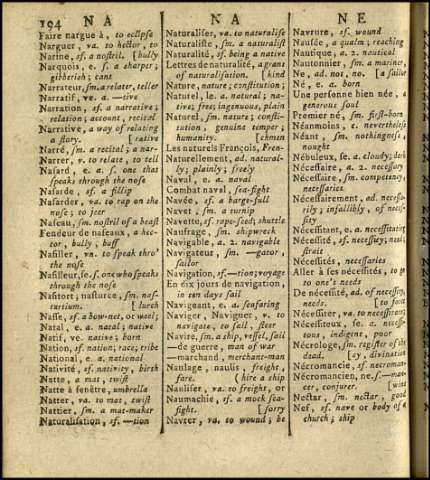 194 N A
N A
N E
Faire nargue à, to eclipse
Narguer, va. to hector, to
Narine, sf. a nostril. [bully
Narquois, e. f. a sharper;
gibberish; cant
Narrateur, sm. a relater, teller
Narratif, ve. a. —tive
Narration, sf. a narrative;
relation; account, recital
Narrative, a way of relating
a story. [rative
Narré, sm. a recital; a nar-
Narrer, v. to relate, to tell
Nasard, e. a. f. one that
speaks through the nose
Nasarde, sf. a fillip
Nasarder, va. to rap on the
nose; to jeer
Naseau, sm. nostril of a beast
Fendeur de naseaux, a hec-
tor, bully, buff
Nasiller, vn. to speak thro'
the nose
Nasilleur, se. f. one who speaks
through the nose
Nasitort, nasturce, sm. nas-
turtium. [lurch
Nasse, sf. a bow-net, or weel;
Natal, e. a. natal; native
Natif, ve. native; born
Nation, sf. nation; race; tribe
National, e. a. national
Nativité, sf. nativity, birth
Natto, a mat, twist
Natte à fenêtre, umbrella
Natter, va. to mat, twist
Nattier, sm. a mat-maker
Naturalisation, sf. —tion
Naturaliser, va. to naturalise
Naturaliste, sm. a naturalist
Naturalité, sf. being a native
Lettres de naturalité, a grant
of naturalisation. [kind
Nature, nature; constitution;
Naturel, le. a. natural; na-
tive; free; ingenuous, plain
Naturel, sm. nature; consti-
tution; genuine temper;
humanity. [chmen
Les naturels François, Fren-
Naturellement, ad. natural-
ly; plainly; freely
Naval, e. a. naval
Combat naval, sea-fight
Navée, sf. a barge-full
Navet, sm. a turnip
Navette, sf. rape-seed; shuttle
Naufrage, sm. shipwreck
Navigable, a. 2. navigable
Navigateur, sm. —gator
sailor
Navigation, sf.—tion; voyage
En dix jours de navigation,
in ten days sail
Navigeant, e. a. seafaring
Naviger, Naviguer, v. to
navigate, to sail, steer
Navire, sm. a ship, vessel, sail
—de guerre, man of war
—marchand, merchant-man
Naulage, naulis, freight,
fare. (hire a ship
Naulifer, va. to freight, or
Naumachie, sf. a mock sea-
fight. [sorry
Navrer, va. to wound; be
Navrure, sf. wound
Nausée, a qualm; reaching
Nautique, a. 2. nautical
Nautonnier, sm. a mariner,
Ne, ad. not, no. [a sailor
Né, e. a. born
Une personne bien née, a
generous soul
Premier né, sm. first-born
Néanmoins, c. nevertheless
Néant, sm. nothingness,
nought
Nébuleux, se. a. cloudy; dark
Nécessaire, a. 2. necessary
Nécessaire, sm. competency,
necessaries
Nécessairement, ad. necessa-
rily; infallibly, of neces-
sity
Nécessitant, e. a. necessitating
Nécessité, sf. necessity; need;
strait
Nécessités, necessaries
Aller à ses nécessités, to go
to one's needs
De nécessité, ad. of necessity,
needs. [to force
Nécessiter, va. to necessitate,
Nécessiteux, se. a. necessi-
tous, indigent, poor
Nécrologe, sm. register of the
dead. [cy, divination
Nécromancie, sf. necroman-
Nécromancien, ne. f.—man-
cer, conjurer. [wine
Nectar, sm. nectar, good
Nef, sf. nave or body of a
church; ship